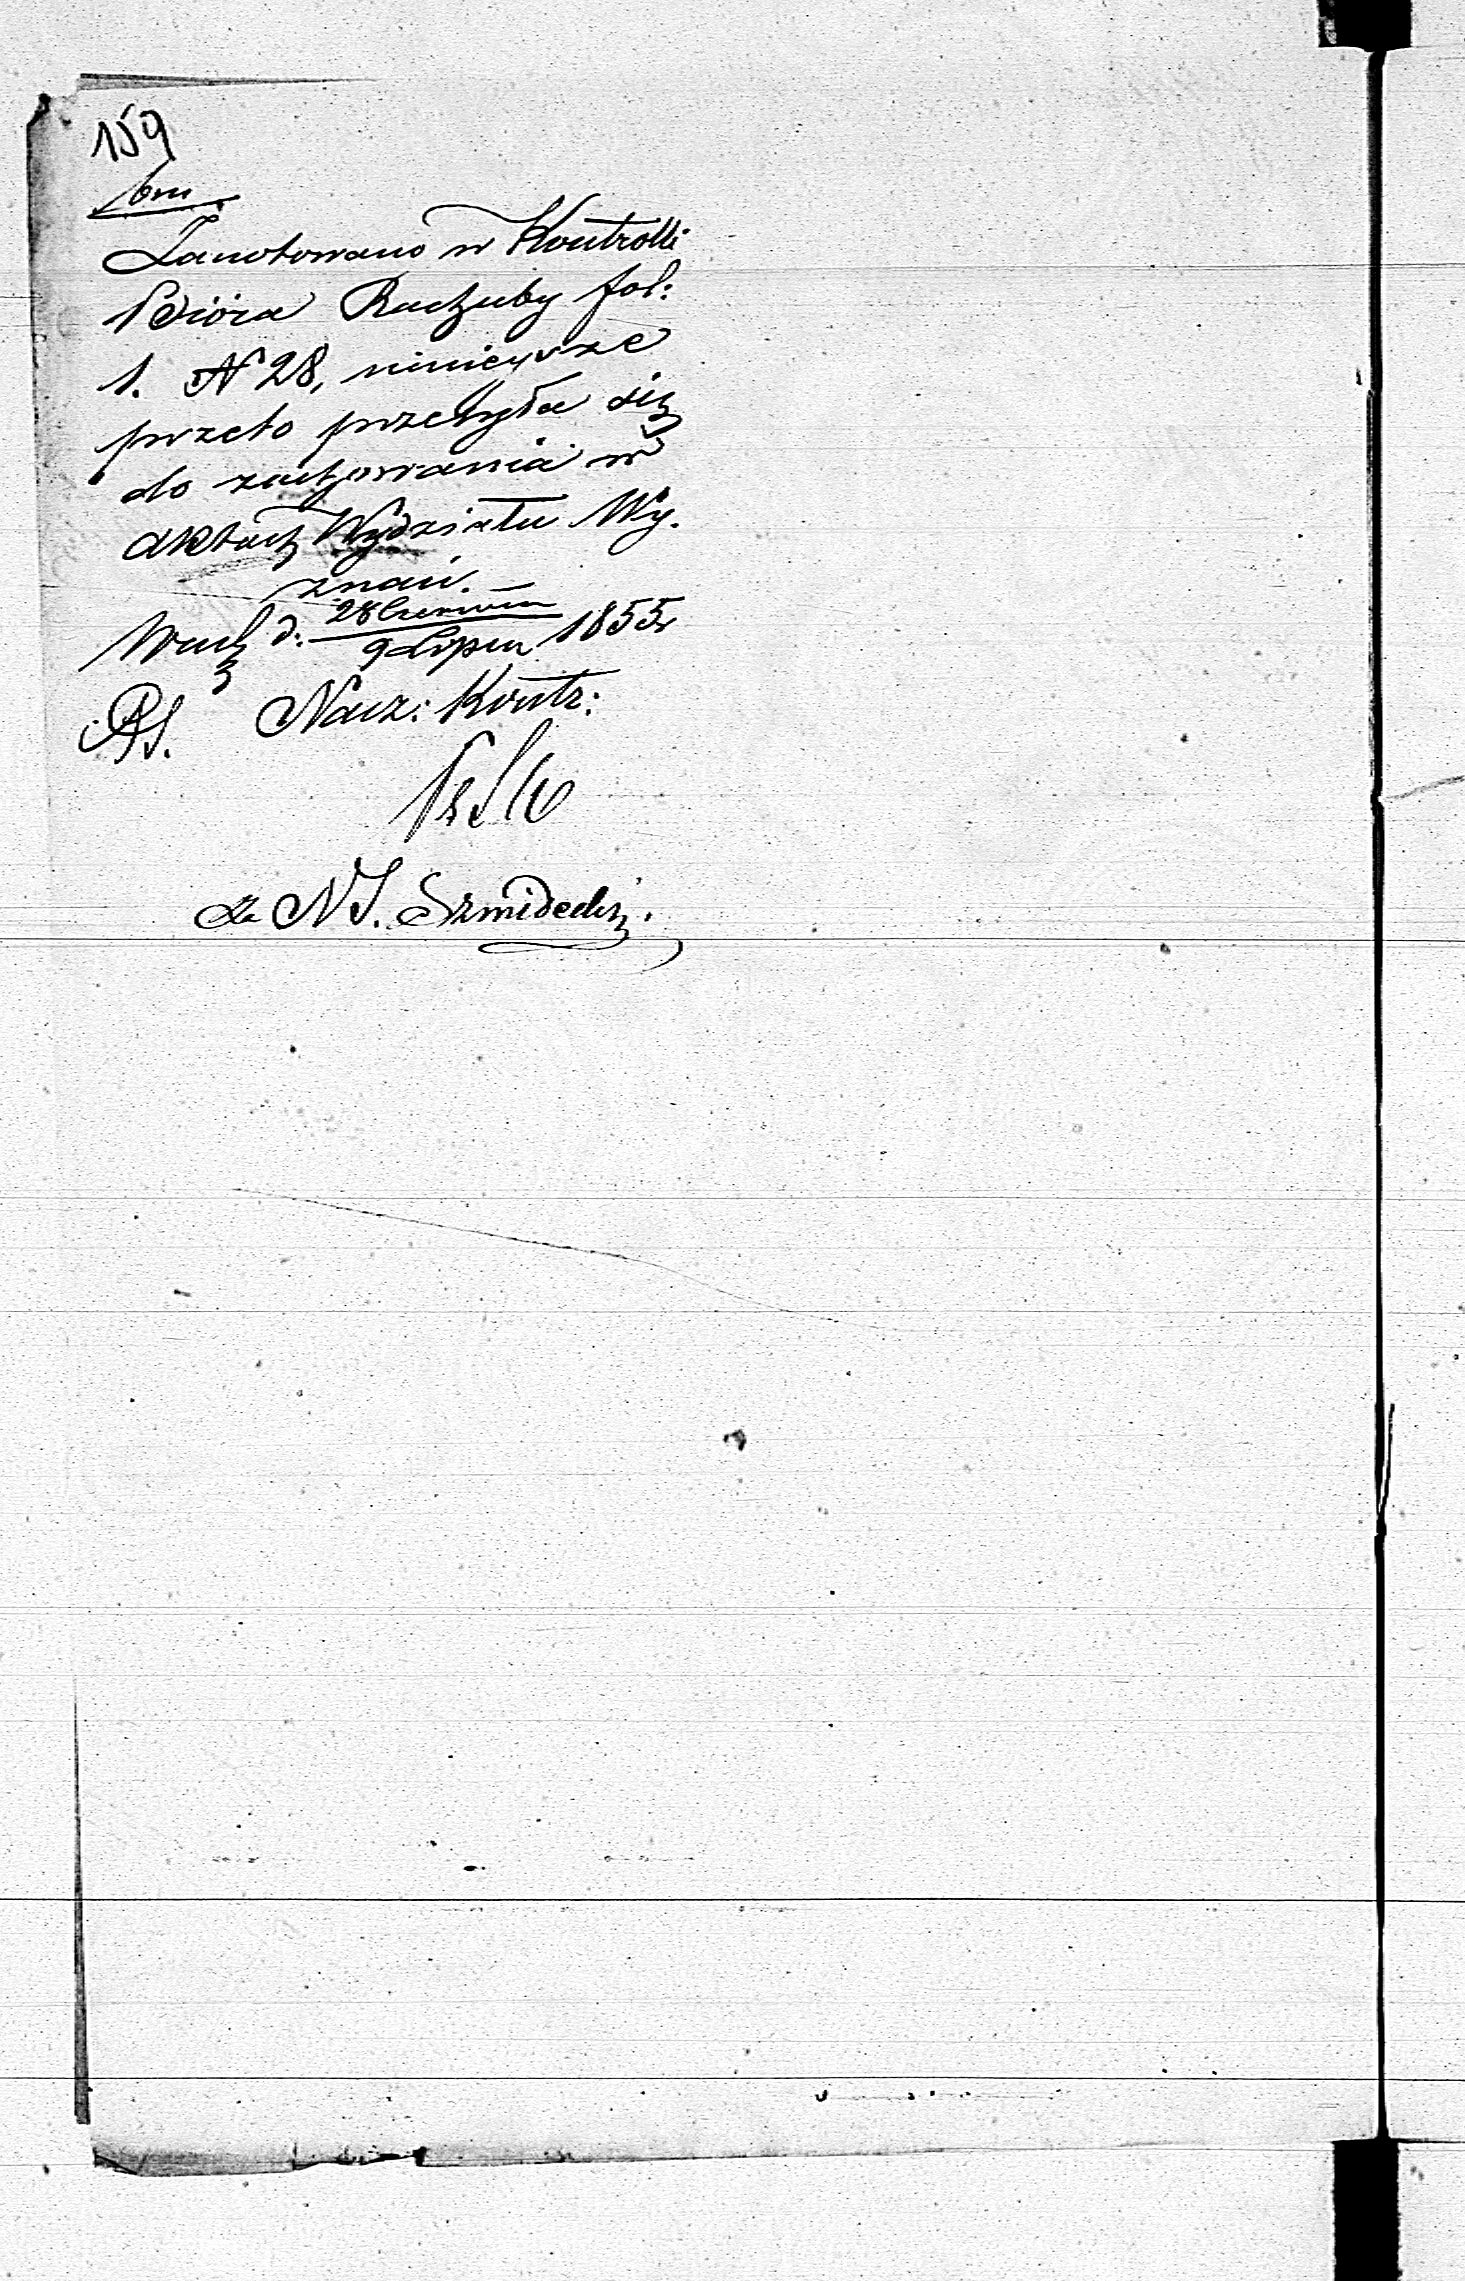 159
Zanotowano w Kontrolli
Bióra Rachuby fol:
1. N 28, niniejsze
przeto przesyła się
do zachowania w
aktach Wydziału Wy-
znań.
d: 28 Czerwca
9 Lipca 1855 r
Nacz: Kontr:
za N S. Szmidecki.